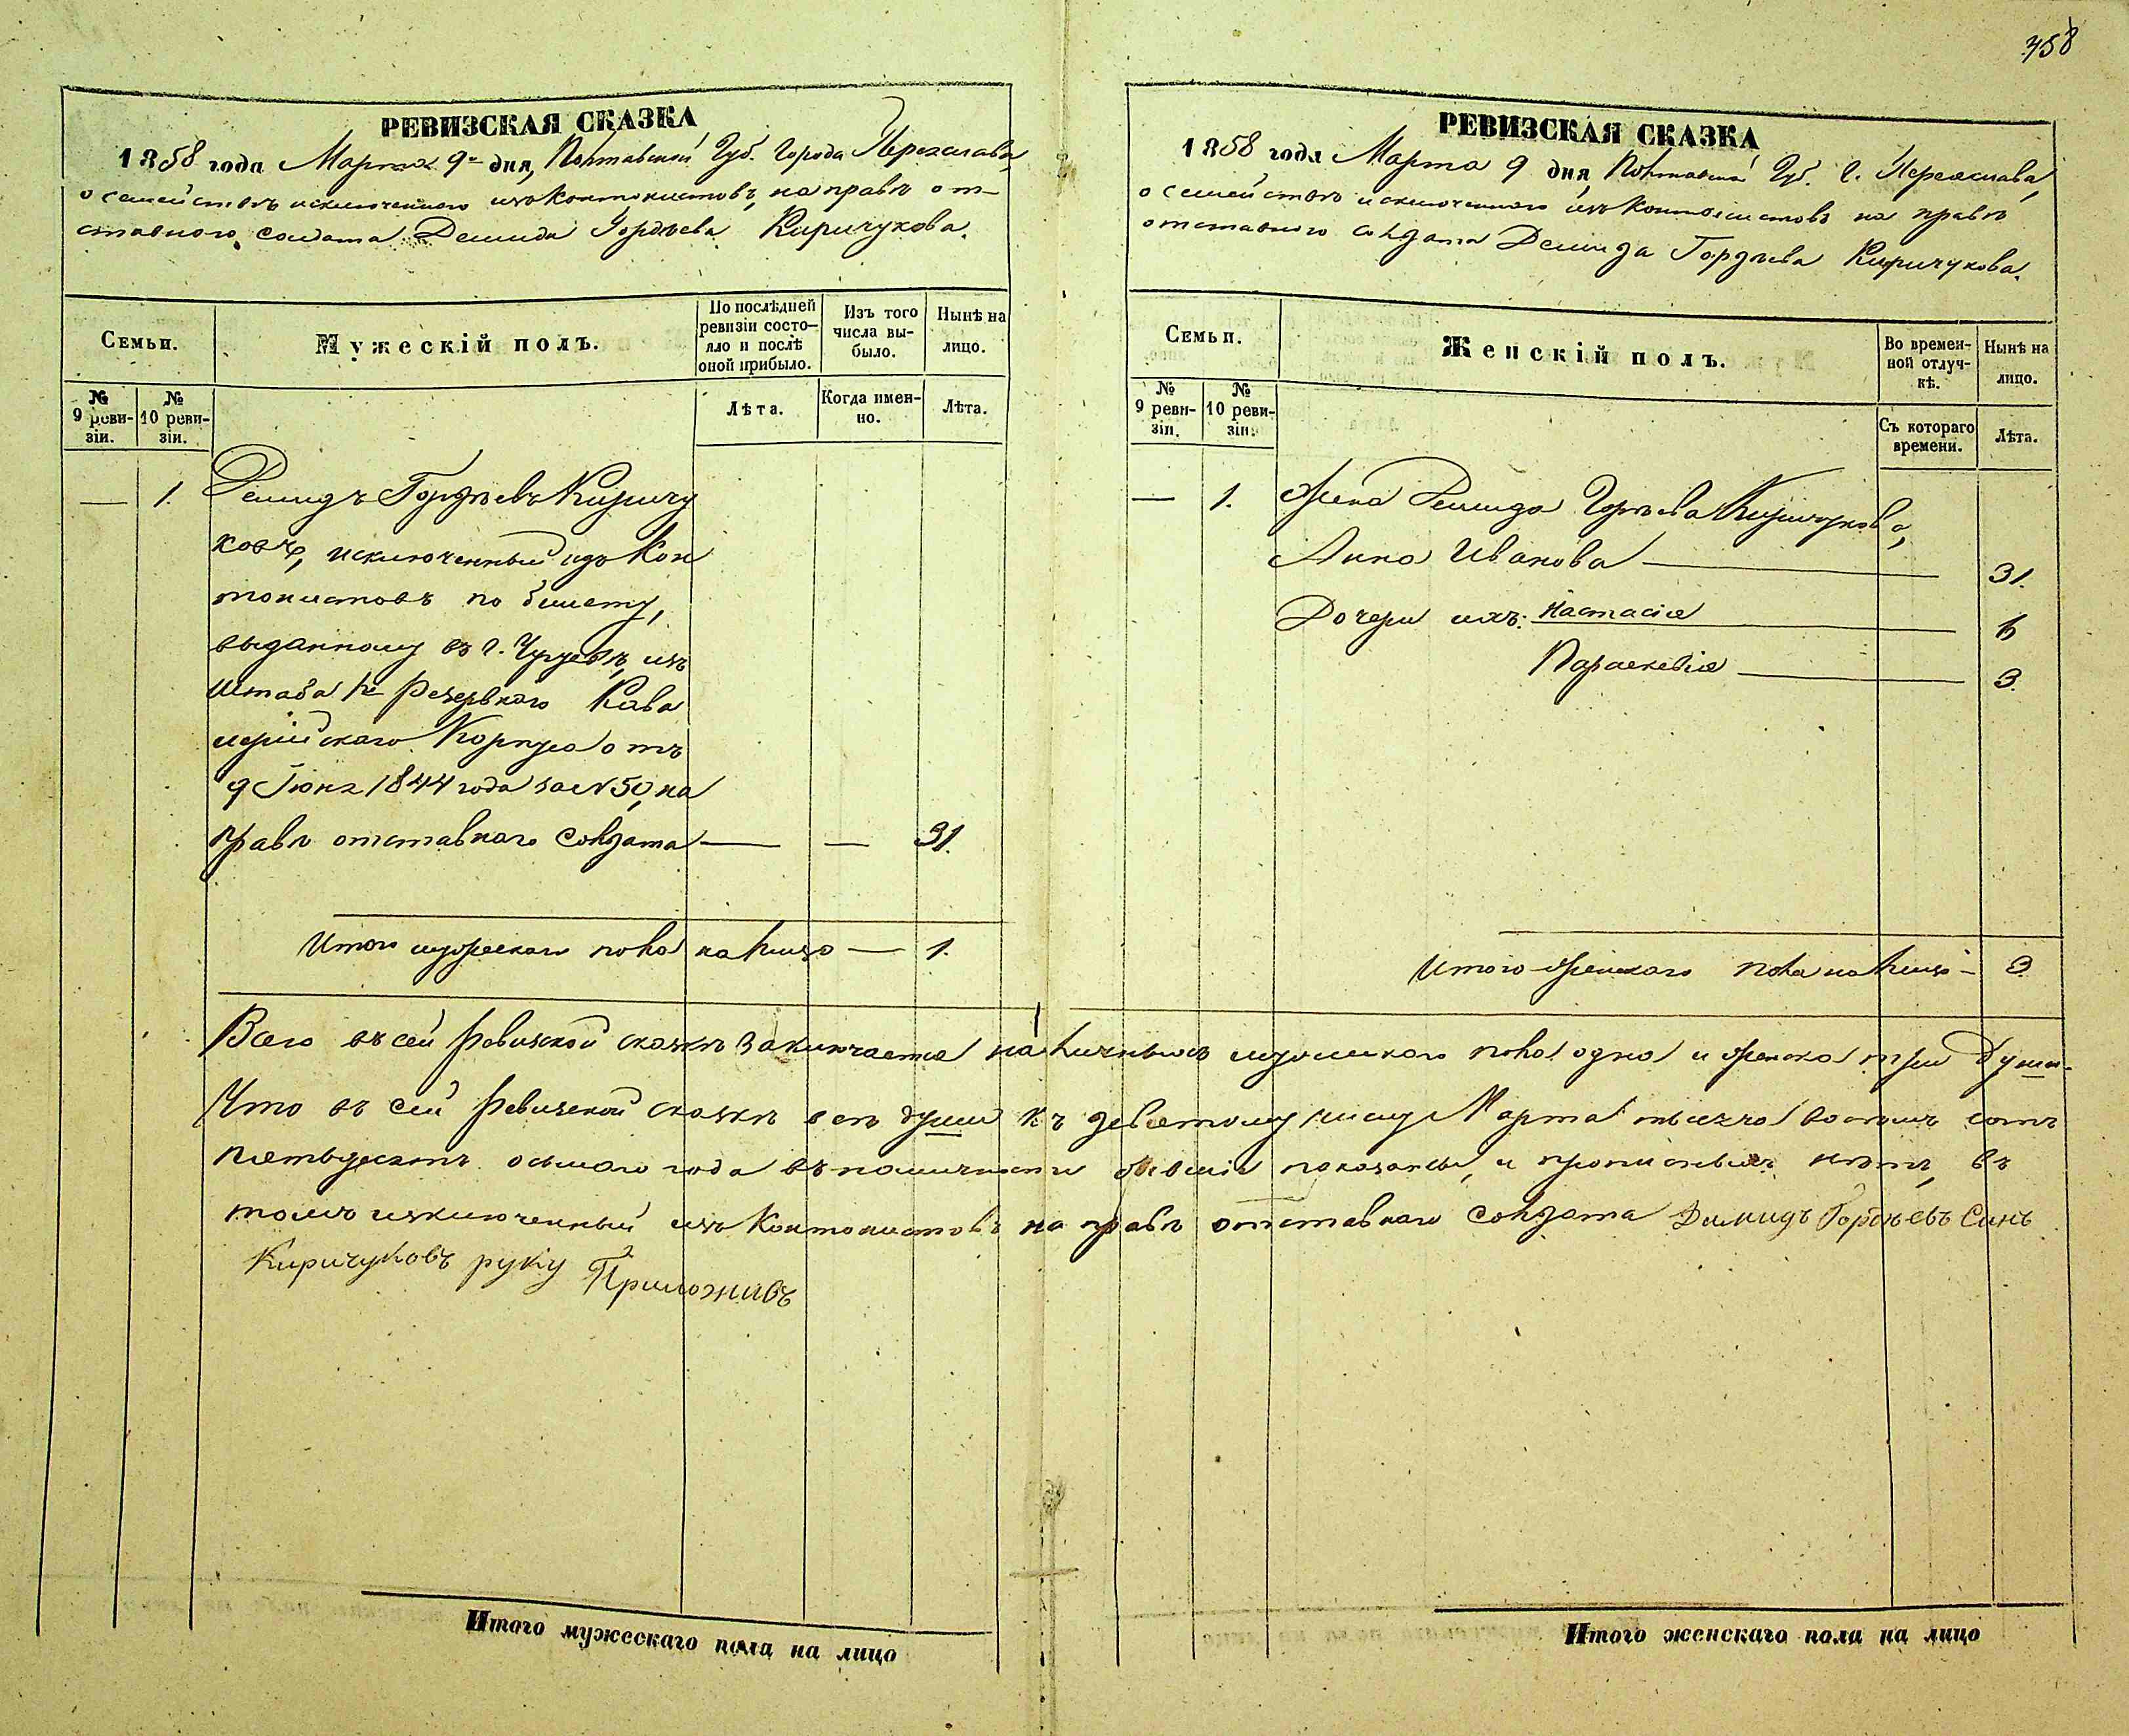 758
РЕВИЗСКАЯ СКАЗКА
1858 года Марта 9го дня, Полтавской Губ. Города Переяслава,
о семействѣ исключеннаго изъ Контонистовъ, на правѣ от-
ставного солдата Демида Гордѣева Киричукова.
Семьи.
Мужескій полъ.
По послѣдней ревизіи состо-
яло и послѣ оной прибыло.
Изъ того числа вы-
было.
Нынѣ на лицо.
№ 9 реви-
зіи.
№ 10 реви-
зіи.
Лѣта.
Когда имен-
но.
Лѣта.
— 1. Демидъ Гордѣевъ Киричу
ковъ, исключенный изъ Кон
тонистовъ по билету,
выданному въ г. Чугуевѣ, изъ
Штаба 1го Резервнаго Кава
лерійскаго Корпуса отъ
9 Іюня 1844 года за № 50, на
правѣ отставнаго Солдата — — 31.
Итого мужескаго пола на лицо — 1.
РЕВИЗСКАЯ СКАЗКА
1858 года Марта 9 дня, Полтавской Губ. г. Переяслава,
о семействѣ исключеннаго изъ Контонистовъ на правѣ
отставного солдата Демида Гордѣева Киричукова.
Семьи.
Женскій полъ.
Во времен-
ной отлуч-
кѣ.
Нынѣ на лицо.
№ 9 реви-
зіи.
№ 10 реви-
зіи.
Съ котораго времени.
Лѣта.
— 1. Жена Демида Гордѣева Киричукова,
Анна Иванова — 31.
Дочери ихъ: Настасія — 6
Параскевія — 3.
Итого женскаго пола на лицо — 3.
Всего въ сей Ревизской сказкѣ заключается наличныхъ мужескаго пола одна и женска три души.
Что въ сей Ревизской сказкѣ всѣ души къ девятому числу Марта тысяча восемь сотъ
пятьдесятъ осьмаго года въ наличности бывшія показаны, и прописныхъ нѣтъ, въ
томъ изключенный изъ Контонистовъ на правѣ отставнаго Солдата Димидъ Гордѣевъ Синъ
Киричуковъ руку Приложивъ
Итого мужескаго пола на лицо
Итого женскаго пола на лицо